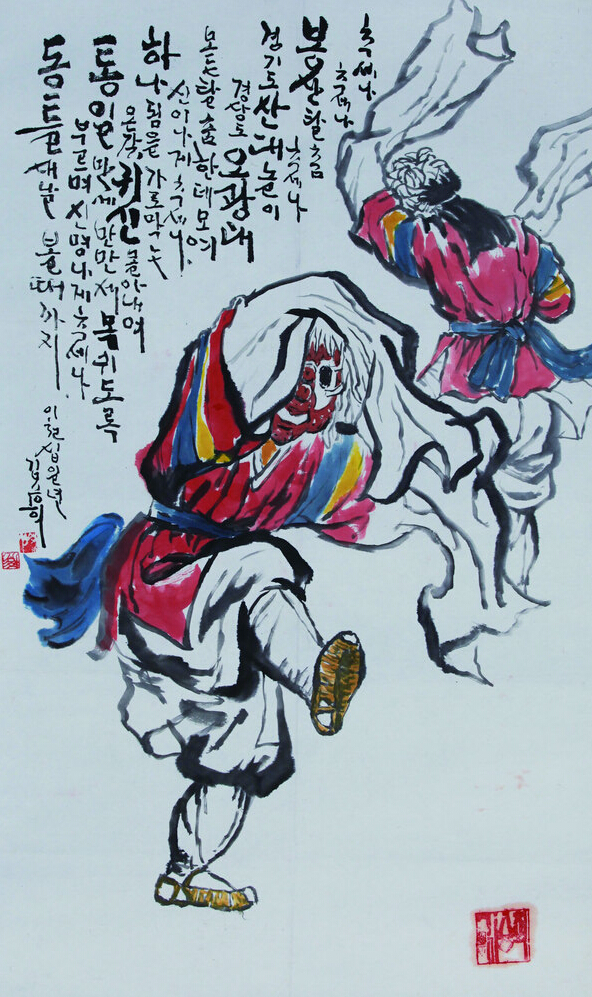 추세나
추세나
봉산탈춤
추세나
경기도 산대놀이
경상도 오광대
모든 탈춤 한데 모여
신이나게 추세나
하나됨을 가로막는
온갖 귀신 몰아내며
통일만세 만만세 목쉬도록
부르며 신명나게 추세나
동틀 새날 볼 때까지
이천십일년